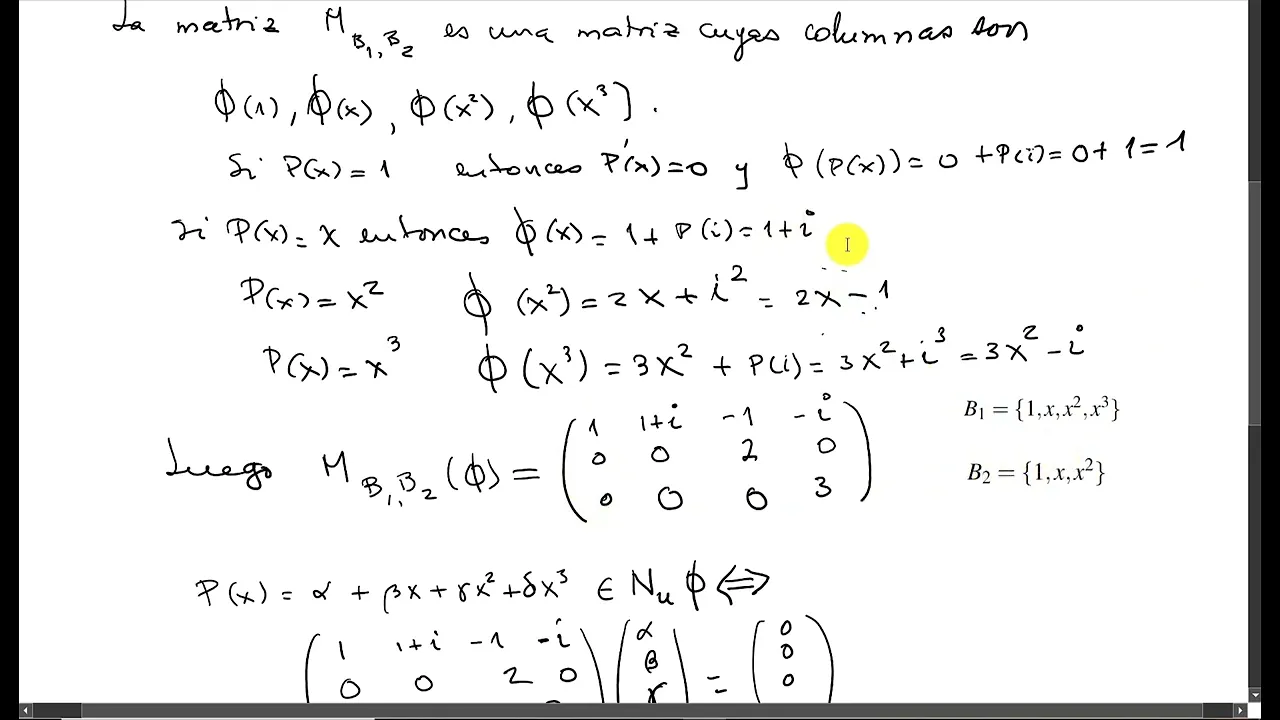 La matriz M_{B_1,B_2} es una matriz cuyas columnas son
ϕ(1), ϕ(x), ϕ(x²), ϕ(x³].
Si P(x) = 1 entonces P'(x) = 0 y ϕ(P(x)) = 0 + P(i) = 0 + 1 = 1
si P(x) = x entonces ϕ(x) = 1 + P(i) = 1 + i
P(x) = x² ϕ(x²) = 2x + i² = 2x - 1
P(x) = x³ ϕ(x³) = 3x² + P(i) = 3x² + i³ = 3x² - i
B₁ = {1,x,x²,x³}
1 1+i -1 -i
Luego M_{B_1,B_2}(ϕ) = 0 0 2 0
0 0 0 3
B₂ = {1,x,x²}
P(x) = α + βx + γx² + δx³ ∈ Nu ϕ ⟺
1 1+i -1 -i α 0
0 0 2 0 β = 0
γ 0